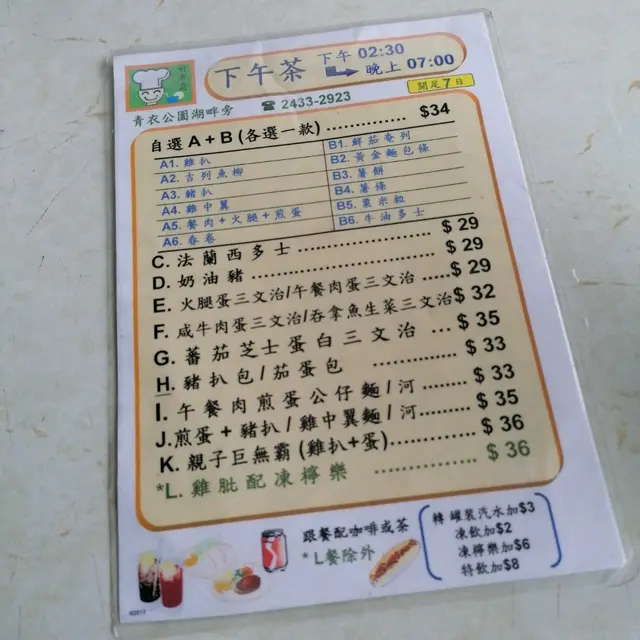 下午茶 下午 02:30
晚上 07:00
開足7日
☎ 2433-2923
青衣公園湖畔旁
自選 A + B (各選一款) ............... $34
A1. 雞扒
A2. 吉列魚柳
A3. 豬扒
A4. 雞中翼
A5. 餐肉+火腿+煎蛋
A6. 春卷
B1. 鮮茄奄列
B2. 黃金麵包條
B3. 薯餅
B4. 薯條
B5. 粟米粒
B6. 牛油多士
C. 法蘭西多士 ..................... $ 29
D. 奶油豬 ........................... $ 29
E. 火腿蛋三文治/午餐肉蛋三文治 ..... $ 29
F. 咸牛肉蛋三文治/吞拿魚生菜三文治 $ 32
G. 蕃茄芝士蛋白三文治 ... $ 35
H. 豬扒包/茄蛋包 .............. $ 33
I. 午餐肉煎蛋公仔麵/河 ........ $ 33
J. 煎蛋+豬扒/雞中翼麵/河 ........ $ 35
K. 親子巨無霸 (雞扒+蛋) ............ $ 36
*L. 雞肶配凍檸樂 ............... $ 36
跟餐配咖啡或茶
* L餐除外
轉 罐裝汽水加$3
凍飲加$2
凍檸樂加$6
特飲加$8